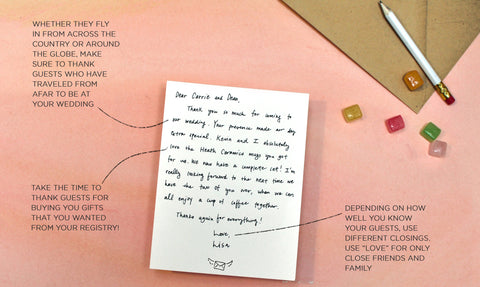 WHETHER THEY FLY
IN FROM ACROSS THE
COUNTRY OR AROUND
THE GLOBE, MAKE
SURE TO THANK
GUESTS WHO HAVE
TRAVELED FROM
AFAR TO BE AT
YOUR WEDDING
TAKE THE TIME TO
THANK GUESTS FOR
BUYING YOU GIFTS
THAT YOU WANTED
FROM YOUR REGISTRY!
Dear Carrie and Dean,
Thank you so much for coming to
our wedding. Your presence made our day
extra special. Kevin and I absolutely
love the Heath Ceramics mugs you got
for us. We now have a complete set! I'm
really looking forward to the next time we
have the two of you over, when we can
all enjoy a cup of coffee together.
Thanks again for everything!
Love,
Lisa
DEPENDING ON HOW
WELL YOU KNOW
YOUR GUESTS, USE
DIFFERENT CLOSINGS.
USE "LOVE" FOR ONLY
CLOSE FRIENDS AND
FAMILY